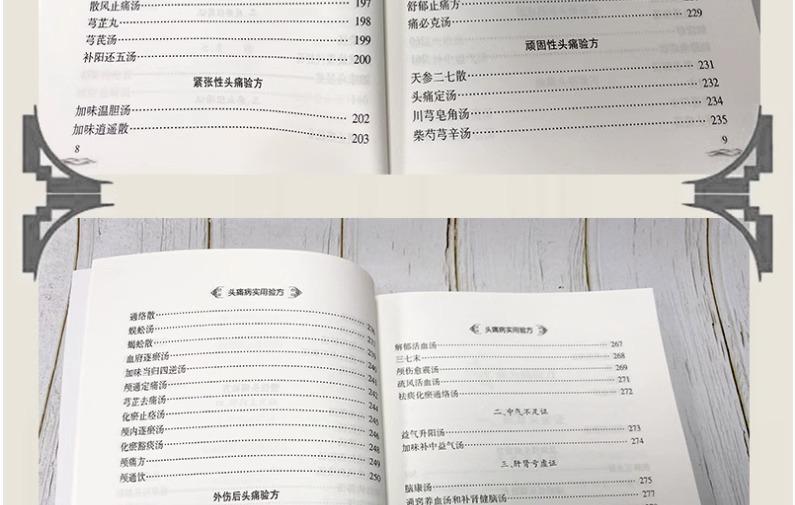 散风止痛汤 197
芎芷丸 198
芎芪汤 199
补阳还五汤 200
紧张性头痛验方
加味温胆汤 202
加味逍遥散 203
8
舒郁止痛方
痛必克汤 229
顽固性头痛验方
天参二七散 231
头痛定汤 232
川芎皂角汤 234
柴芍芎辛汤 235
9
头痛病实用验方
通络散
蜈蚣汤
蝎蚣散
血府逐瘀汤
加味当归四逆汤 240
颅通定痛汤 241
芎芷去痛汤 242
化瘀止络汤 244
颅内逐瘀汤 245
化瘀豁痰汤 248
颅痛方 249
颅通饮 250
外伤后头痛验方
头痛病实用验方
解郁活血汤 267
三七末 268
颅伤愈震汤 269
疏风活血汤 271
祛痰化瘀通络汤 272
二、中气不足证
益气升阳汤 273
加味补中益气汤 274
三、肝肾亏虚证
脑康汤 275
通窍养血汤和补肾健脑汤 277